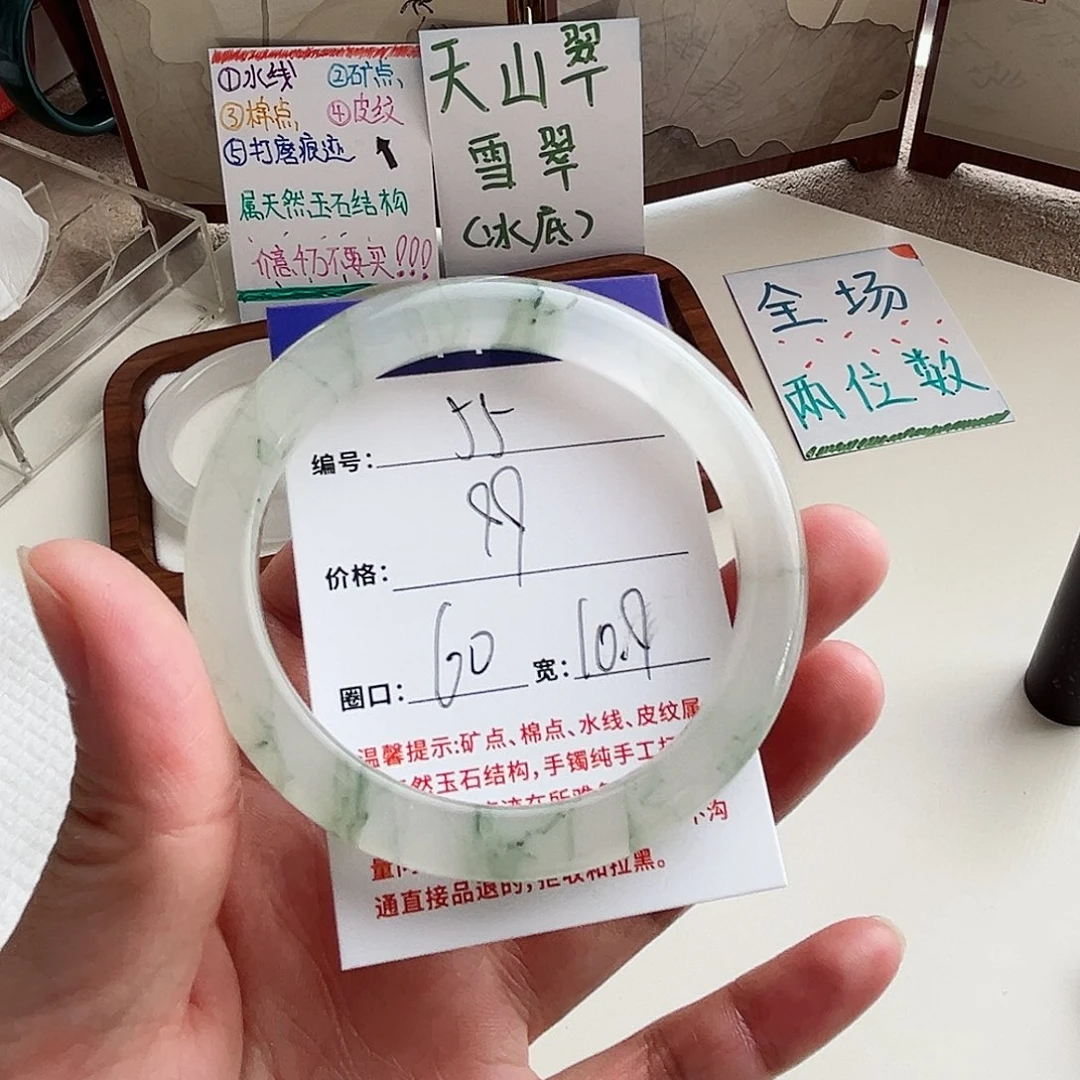 ①水线 ②矿点,
③棉点, ④皮纹
⑤打磨痕迹
属天然玉石结构
介意千万不要买!!!
天山翠
雪翠
(冰底)
全场
两位数
编号: 55
价格: 99
圈口: 60 宽: 10.9
温馨提示:矿点、棉点、水线、皮纹属
然玉石结构,手镯纯手工
不沟
量
通直接品退的,拒收和拉黑。